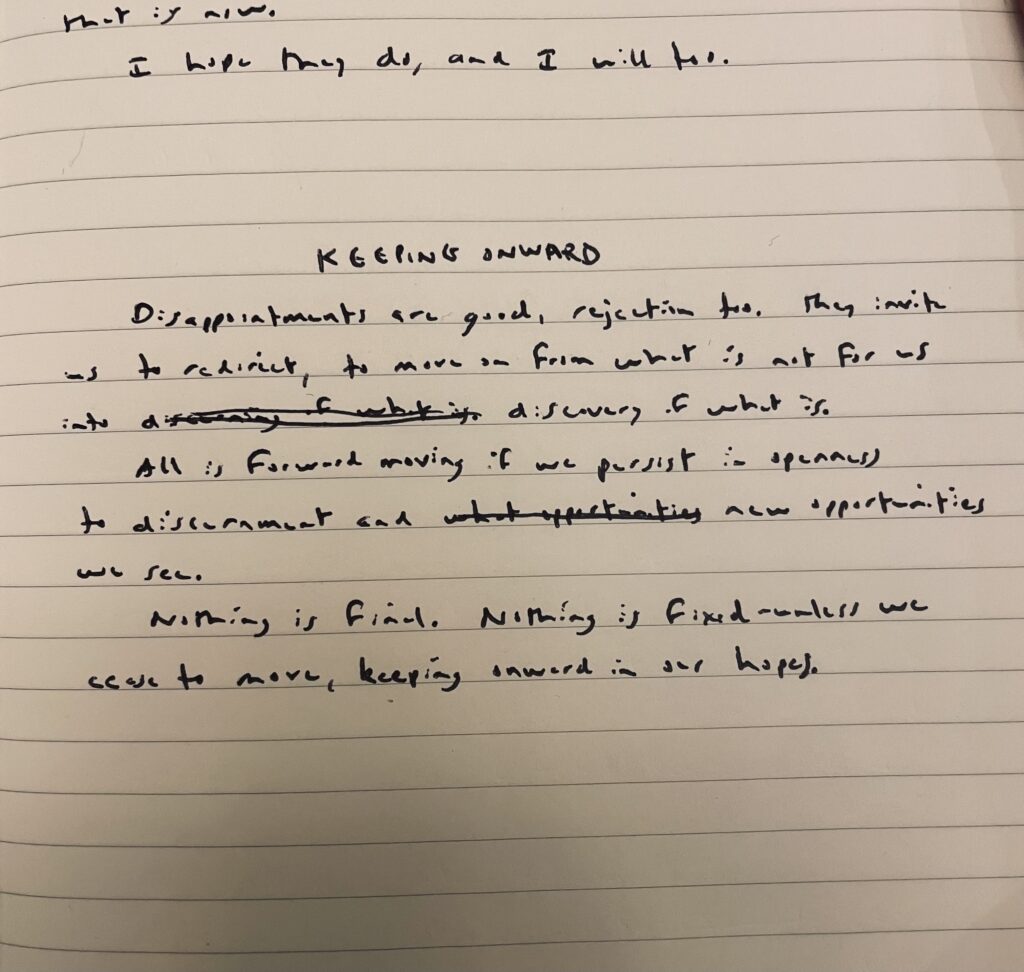 that is now.
I hope they do, and I will too.
KEEPING ONWARD
Disappointments are good, rejection too. They invite
us to redirect, to move on from what is not for us
into discovery of what is.
All is forward moving if we persist in openness
to discernment and what opportunities new opportunities
we see.
Nothing is final. Nothing is fixed-unless we
cease to move, keeping onward in our hopes.